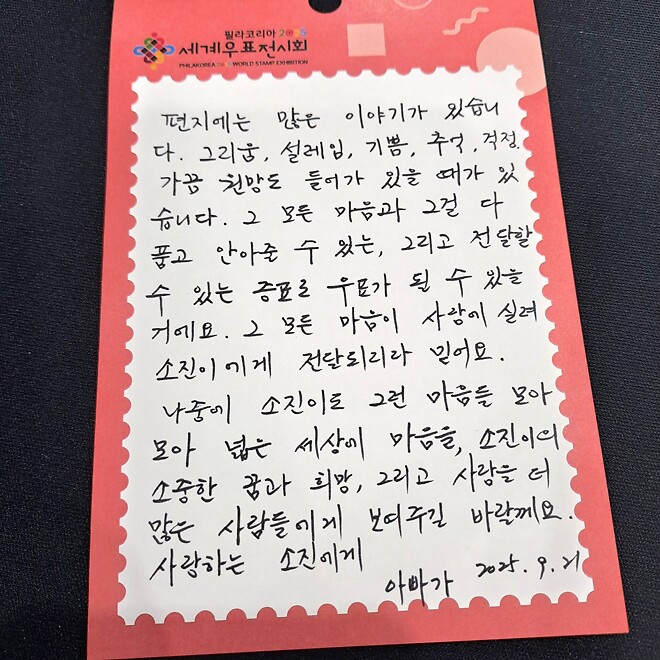 필라코리아 2025
세계우표전시회
PHILAKOREA 2025 WORLD STAMP EXHIBITION
편지에는 많은 이야기가 있습니
다. 그리움, 설레임, 기쁨, 추억, 걱정.
가끔 원망도 들어가 있을 때가 있
습니다. 그 모든 마음과 그걸 다
품고 안아준 수 있는, 그리고 전달할
수 있는 증표로 우표가 될 수 있을
거에요. 그 모든 마음이 사랑에 실려
소진이에게 전달되리라 믿어요.
나중에 소진이도 그런 마음들 모아
모아 넓은 세상에 마음을, 소진이의
소중한 꿈과 희망, 그리고 사랑을 더
많은 사람들에게 보여주길 바랄께요.
사랑하는 소진에게
아빠가 2025. 9. 21